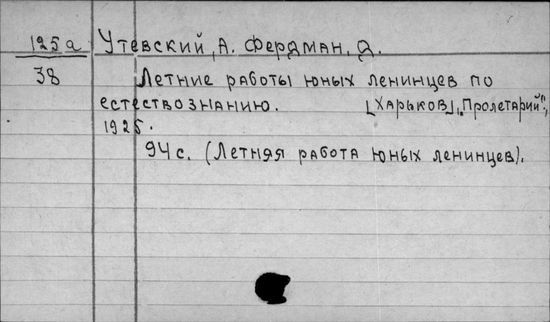 125а Утевский, А. Фердман, Д.
38 Летние работы юных ленинцев по
естествознанию. [Харьков], "Пролетарий",
1925.
94 с. (Летняя работа юных ленинцев).